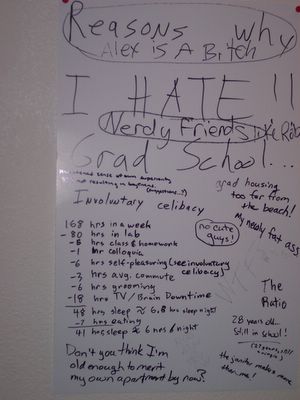 Reasons why
Alex is A Bitch
I HATE!!
Nerdy Friends like Rob
Grad School...
sense of own superiority
not resulting in
grad housing
too far from
the beach!
Involuntary celibacy
My newly fat ass
no cute
guys!
168 hrs in a week
-80 hrs in lab
-8 hrs class & homework
-1 hr colloquia
-6 hrs self-pleasuring (see involuntary
celibacy)
-3 hrs avg. commute
-6 hrs grooming
-18 hrs TV/Brain Downtime
48 hrs sleep ≈ 6.8 hrs sleep/night
-7 hrs eating
41 hrs sleep ≈ 6 hrs/night
The
Ratio
28 years old...
still in school!
(27 years, still
single)
Don't you think I'm
old enough to merit
my own apartment by now?
the janitor makes more
than me!